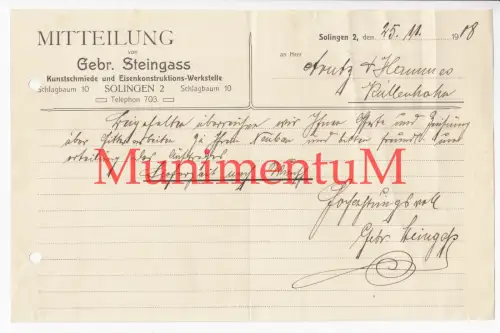 MITTEILUNG
von
Gebr. Steingass
Kunstschmiede und Eisenkonstruktions-Werkstelle
Schlagbaum 10 SOLINGEN 2 Schlagbaum 10
Telephon 703.
Solingen 2, den 25. 11. 1908
an Herr
& Hammes
überreichen wir Ihnen Offerte und Zeichnung
über Gitterarbeiten zu Ihrem Neubau und bitten freundl. um
erteilung des Auftrages
Lieferzeit nach Wunsch
MunimentuM
Hochachtungsvoll
Gebr. Steingass